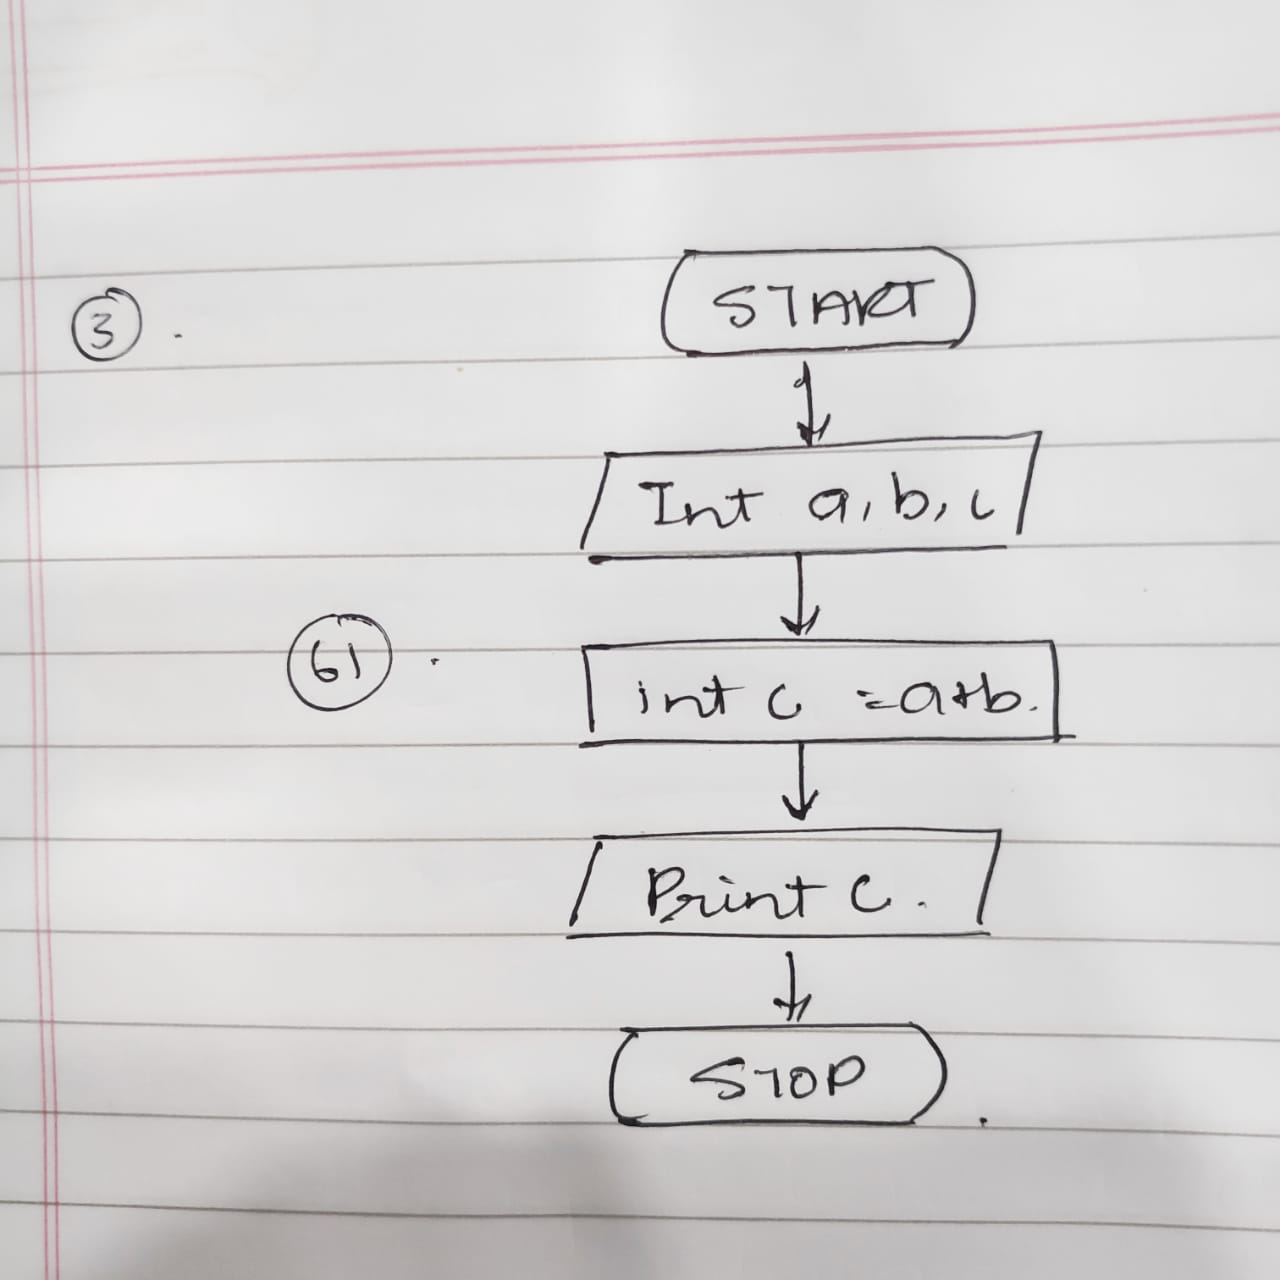 3 .
START
Int a, b, c
61 .
int c = a+b.
Print C.
STOP .